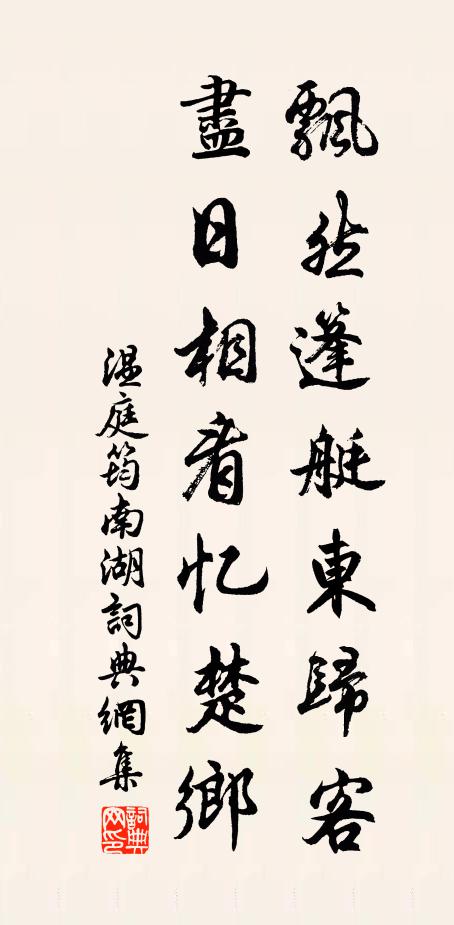 飄然蓬艇東歸客
盡日相看忆楚鄉
温庭筠南湖詞典網集
詞典網印